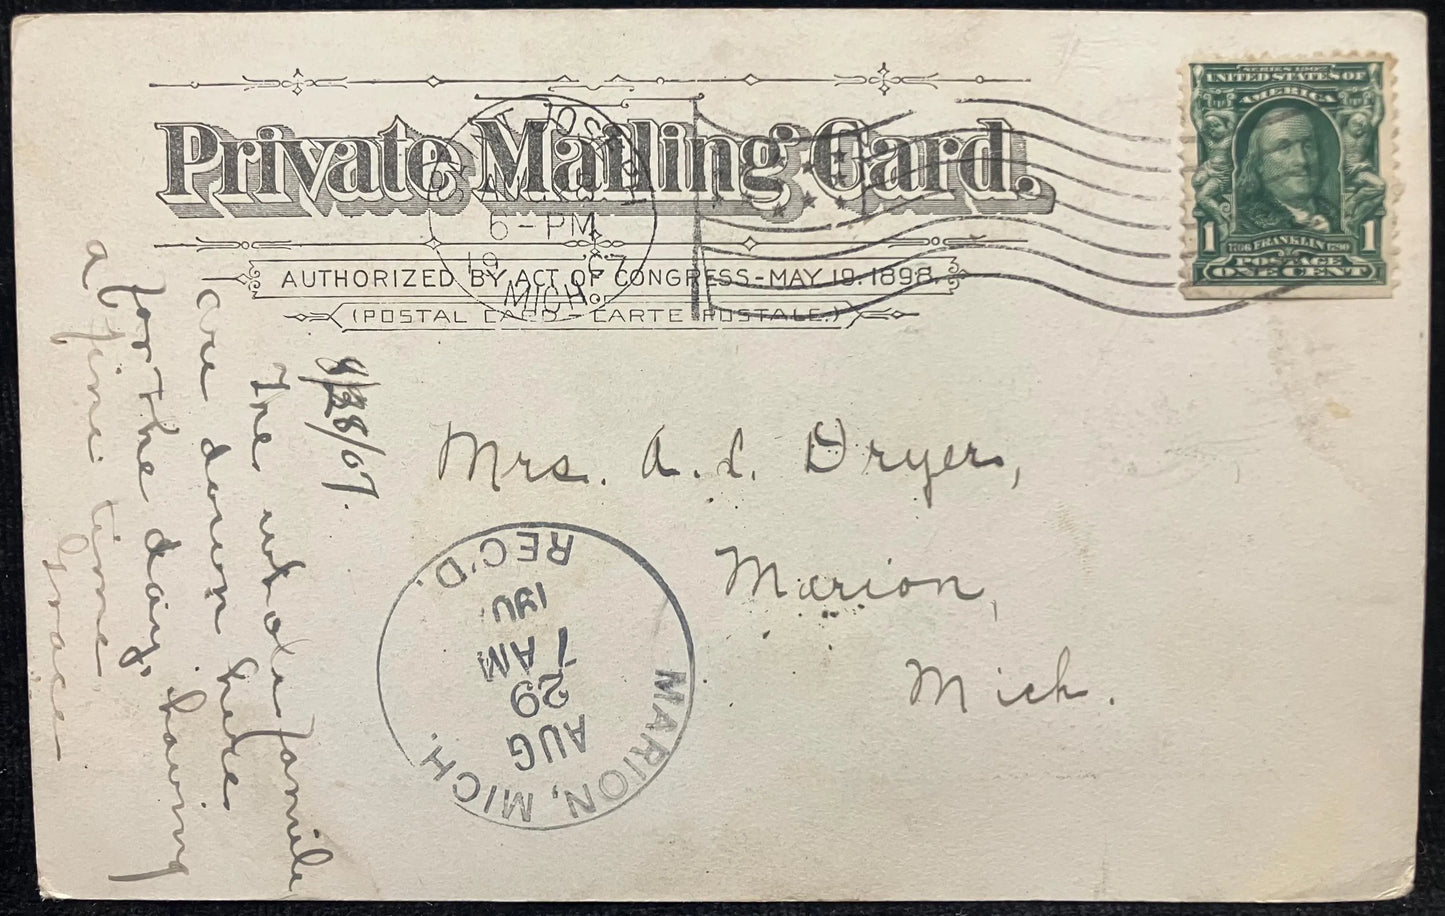 Private Mailing Card.
AUTHORIZED BY ACT OF CONGRESS-MAY 19. 1898.
(POSTAL CARD - CARTE POSTALE.)
6-PM
MICH.
SERIES 1902
UNITED STATES OF
AMERICA
1706 FRANKLIN 1790
1 1
POSTAGE
ONE CENT
8/28/07.
The whole familie
are down here
for the day, having
a fine time
Grace
Mrs. A. L. Dryers,
Marion,
Mich.
MARION, MICH.
AUG
29
7 AM
190
REC'D.